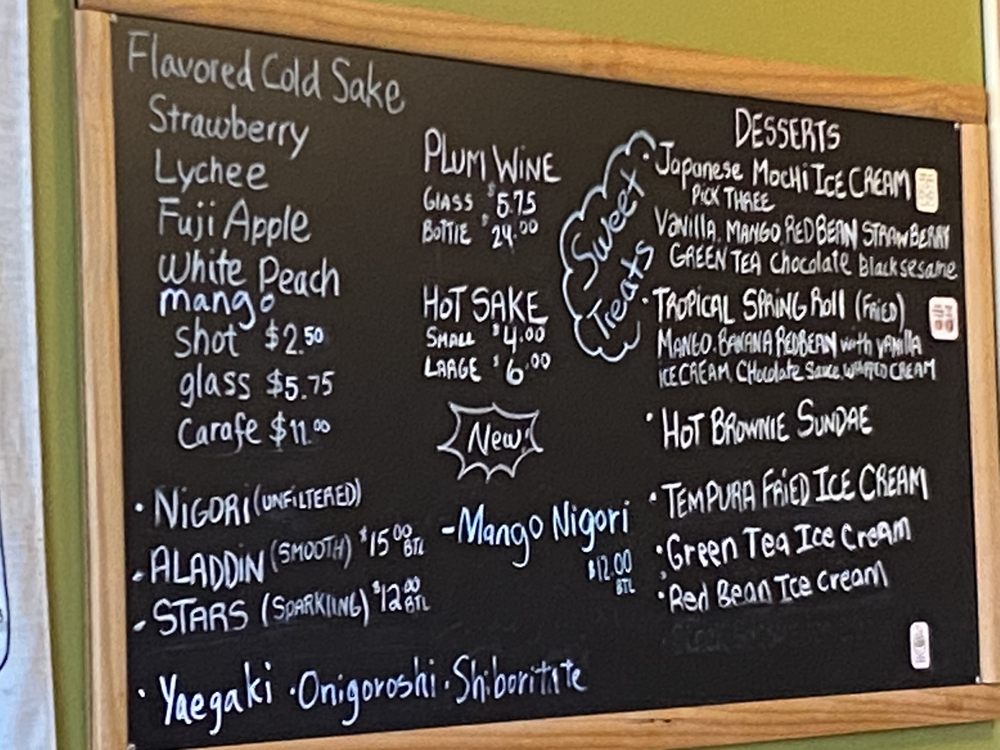 Flavored Cold Sake
Strawberry
Lychee
Fuji Apple
White Peach
mango
Shot $2.50
glass $5.75
Carafe $11.00
PLUM WINE
GLASS $5.75
BOTTLE $24.00
HOT SAKE
SMALL $4.00
LARGE $6.00
New!
• NIGORI (UNFILTERED)
- ALADDIN (SMOOTH) $15.00 BTL
- STARS (SPARKLING) $12.00 BTL
- Mango Nigori
$12.00
BTL
• Yaegaki • Onigoroshi • Shiboritate
Sweet
Treats
DESSERTS
• Japanese Mochi ICE CREAM
PICK THREE
Vanilla, MANGO, RED BEAN, STRAWBERRY
GREEN TEA Chocolate Black sesame
• TROPICAL SPRING Roll (FRIED)
MANGO, BANANA REDBEAN with VANILLA
ICE CREAM, CHocolate Sauce, WHIPPED CREAM
• HOT BROWNIE SUNDAE
• TEMPURA FRiED ICE CREAM
• Green Tea Ice Cream
• Red Bean Ice Cream